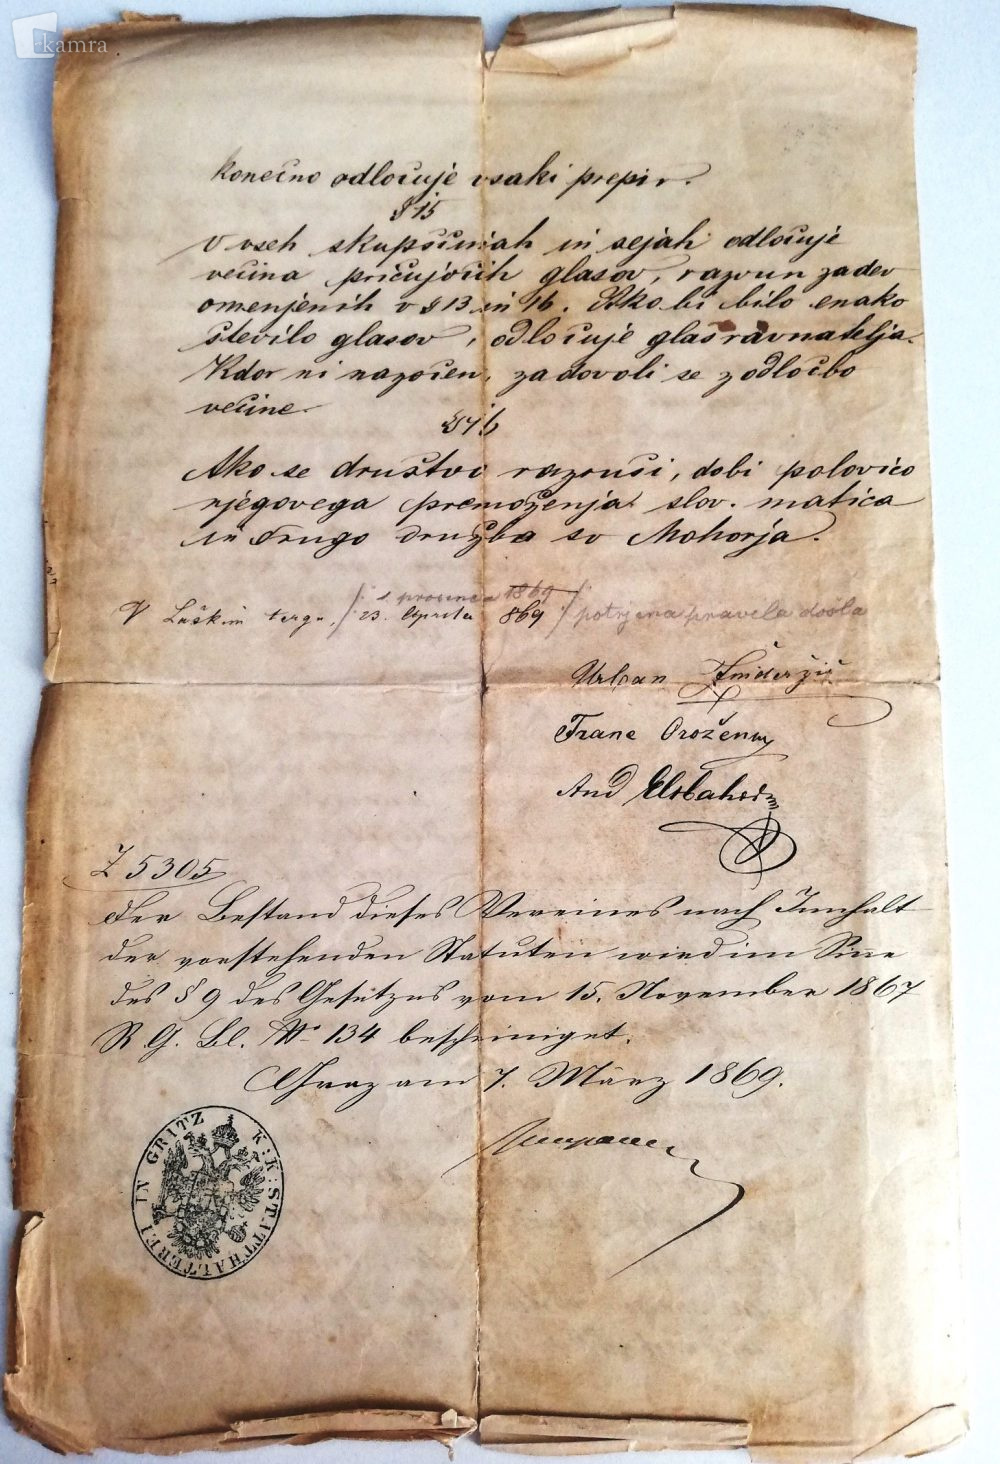 kamra
konečno odločuje vsaki prepir.
§ 15
V vseh skupščinah in sejah odločuje
večina pričujočih glasov, razvun zadev
omenjenih v § 13 in 16. Ako bi bilo enako
število glasov, odločuje glas ravnatelja.
Kdor ni nazočen, zadovoli se z odločbo
večine.
§ 16
Ako se društvo razruši, dobi polovico
njegovega premoženja slov. matica
in drugo družba sv Mohorja.
1 prosenca 1869
V Laškim tergu, 23. Aprila 869 potrjena pravila došla
Urban
Franc Orožen
And Elsbaher
Z 5305
Der Bestand dieses Vereines nach Innhalt
der vorstehenden Statuten wird im Sinne
des § 9 des Gesetzes vom 15. November 1867
R. G. Bl. No 134 bescheiniget.
Graz am 7. März 1869.
K: K: STATTHALTEREI IN GRATZ